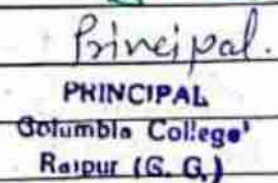 Principal.
PRINCIPAL
Columbia College'
Raipur (G. G.)